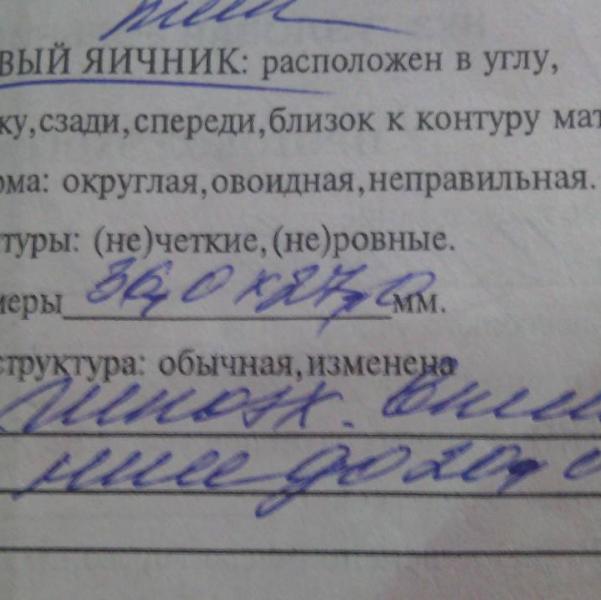 ВЫЙ ЯИЧНИК: расположен в углу,
ку,сзади,спереди,близок к контуру мат
ма: округлая,овоидная,неправильная.
туры: (не)четкие,(не)ровные.
меры 36,0 х 27,0 мм.
структура: обычная,изменена
до 20,0